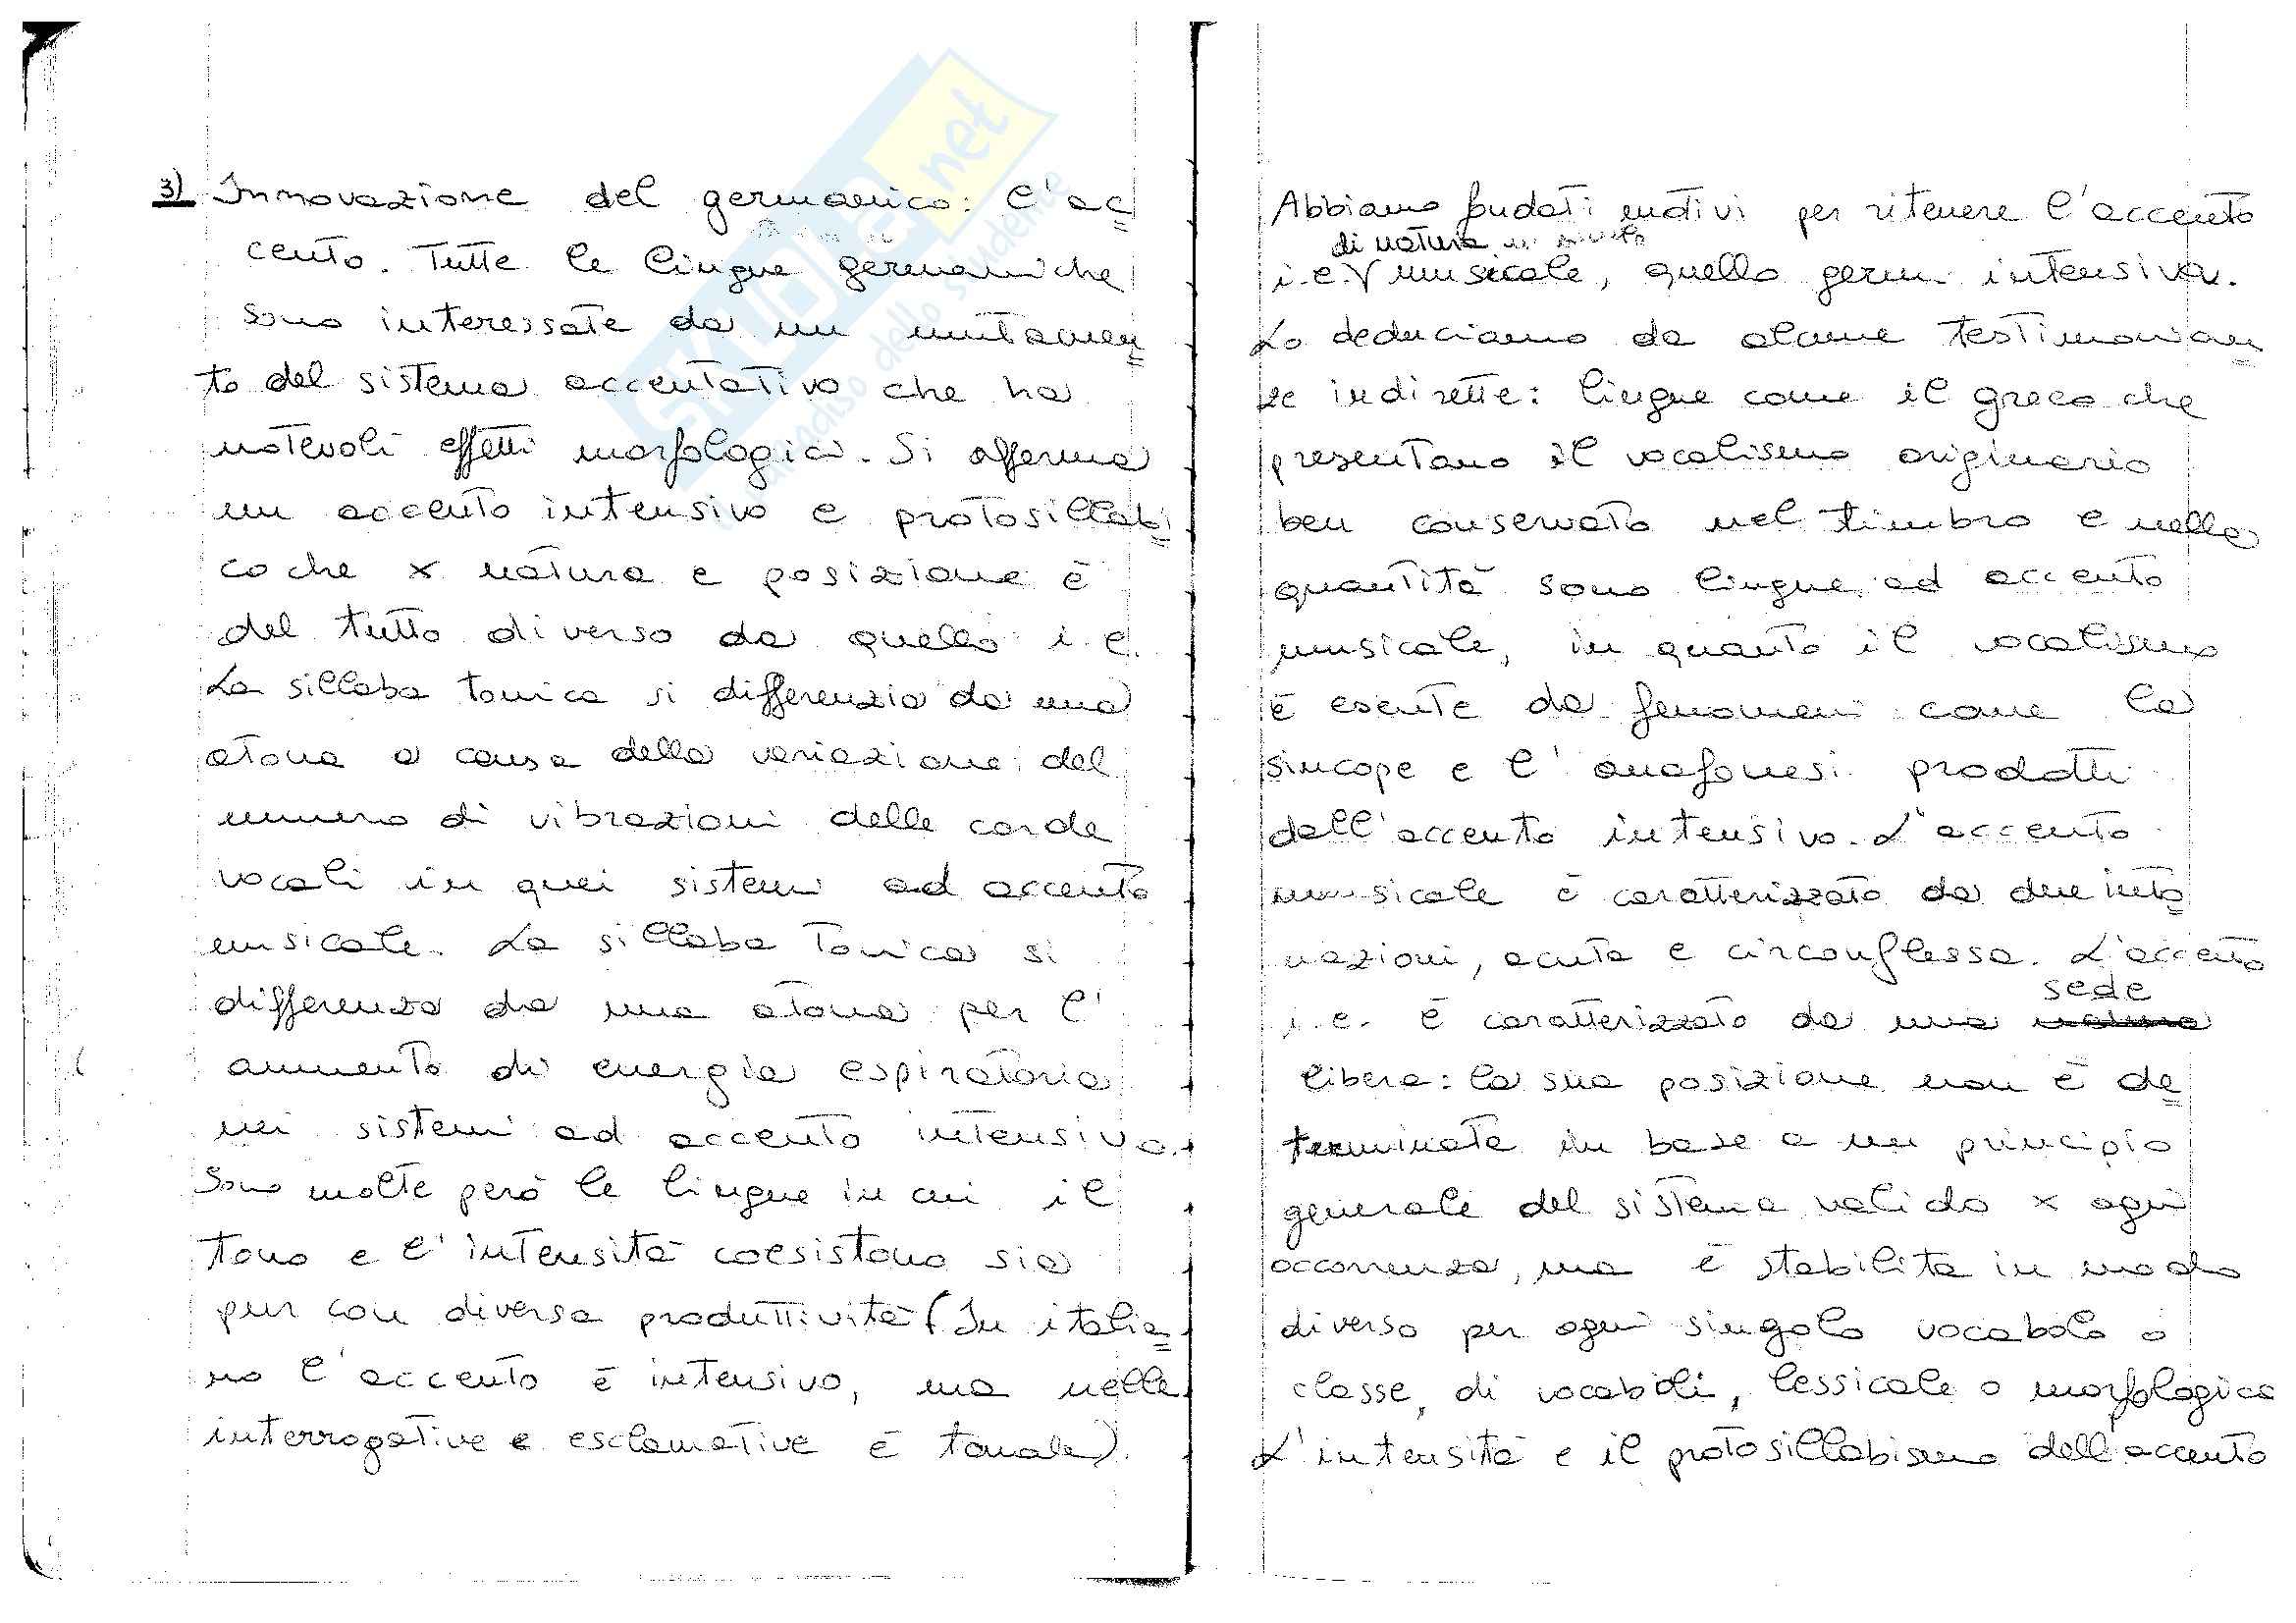 3) Innovazione del germanico: l'ac
cento. Tutte le lingue germaniche
sono interessate da un mutamen
to del sistema accentativo che ha
notevoli effetti morfologici. Si afferma
un accento intensivo e protosillabi
co che x natura e posizione è
del tutto diverso da quello i.e.
La sillaba tonica si differenzia da una
atona a causa della variazione del
numero di vibrazioni delle corde
vocali in quei sistemi ad accento
musicale. La sillaba tonica si
differenza da una atona per l'
aumento di energia espiratoria
nei sistemi ad accento intensivo.
Sono molte però le lingue in cui il
tono e l'intensità coesistono sia
pur con diversa produttività (In italia
no l'accento è intensivo, ma nelle
interrogative e esclamative è tonale).
Abbiamo fondati motivi per ritenere l'accento
di natura
i.e. musicale, quello germ. intensivo.
Lo deduciamo da alcune testimonian
ze indirette: lingue come il greco che
presentano il vocalismo originario
ben conservato nel timbro e nella
quantità sono lingue ad accento
musicale, in quanto il vocalismo
è esente da fenomeni come la
sincope e l'anafonesi prodotti
dall'accento intensivo. L'accento
musicale è caratterizzato da due into
nazioni, acuta e circonflessa. L'accento
sede
i.e. è caratterizzato da una natura
libera: la sua posizione non è de
terminata in base a un principio
generale del sistema valido x ogni
occorrenza, ma è stabilita in modo
diverso per ogni singolo vocabolo o
classe, di vocaboli, lessicale o morfologica
L'intensità e il protosillabismo dell'accento
skuola.net
paradiso dello studente